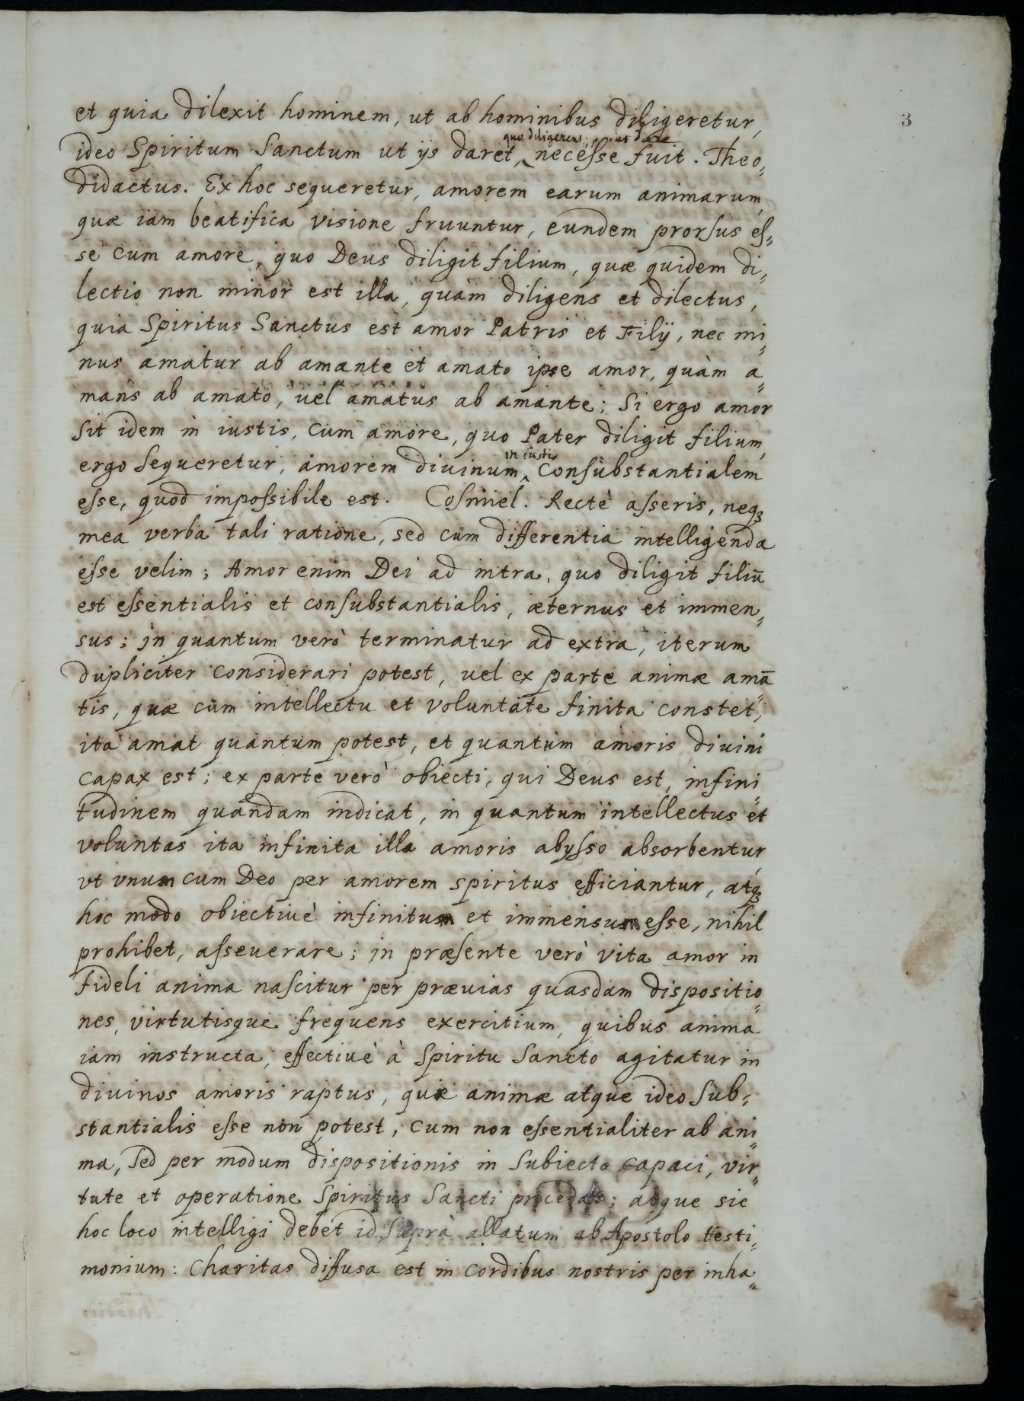 3
et quia dilexit hominem, ut ab hominibus diligeretur,
ideo Spiritum Sanctum ut ijs daret, necesse fuit. Theo¸
didactus. Ex hoc sequeretur, amorem earum animarum,
quæ iam beatifica visione fruuntur, eundem prorsus es¸
se cum amore, quo Deus diligit filium, quæ quidem di¸
lectio non minor est illa, quàm diligens et dilectus,
quia Spiritus Sanctus est amor Patris et Filij, nec mi¸
nus amatur ab amante et amato ipse amor, quàm a¸
mans ab amato, uel amatus ab amante; Si ergo amor
sit idem in iustis, cum amore, quo Pater diligit filium,
in iustis
ergo sequeretur, amorem divinum ‸ Consubstantialem
esse, quod impossibile est. Cosmiel. Rectè asseris, neq;
mea verba tali ratione, sed cum differentia intelligenda
esse velim; Amor enim Dei ad intra, quo diligit filiũ
est essentialis et consubstantialis, æternus et immen¸
sus; in quantum verò terminatur ad extra, iterum
dupliciter considerari potest, uel ex parte animæ amã
tis, quæ cùm intellectu et voluntate finita constet,
ita amat quantum potest, et quantum amoris divini
capax est; ex parte verò obiecti, qui Deus est, infini¸
tudinem quandam indicat, in quantum intellectus et
voluntas ita infinita illa amoris abysso absorbentur,
vt vnum cum Deo per amorem spiritus efficiantur, atq;
hoc modo obiectiuè infinitum et immensum esse, nihil
prohibet, asseuerare; in præsente verò vita amor in
fideli anima nascitur per præuias quasdam dispositio¸
nes, virtutisque frequens exercitium, quibus anima
iam instructa, effectiuè à Spiritu Sancto agitatur in
divinos amoris raptus, quæ animæ atque ideo sub¸
stantialis esse non potest, cum non essentialiter ab ani¸
ma, sed per modum dispositionis in subiecto capaci, vir¸
tute et operatione Spiritus Sancti procedat; atque sic
hoc loco intelligi debet id suprà allatum ab Apostolo testi¸
monium: Charitas diffusa est in cordibus nostris per inha¸